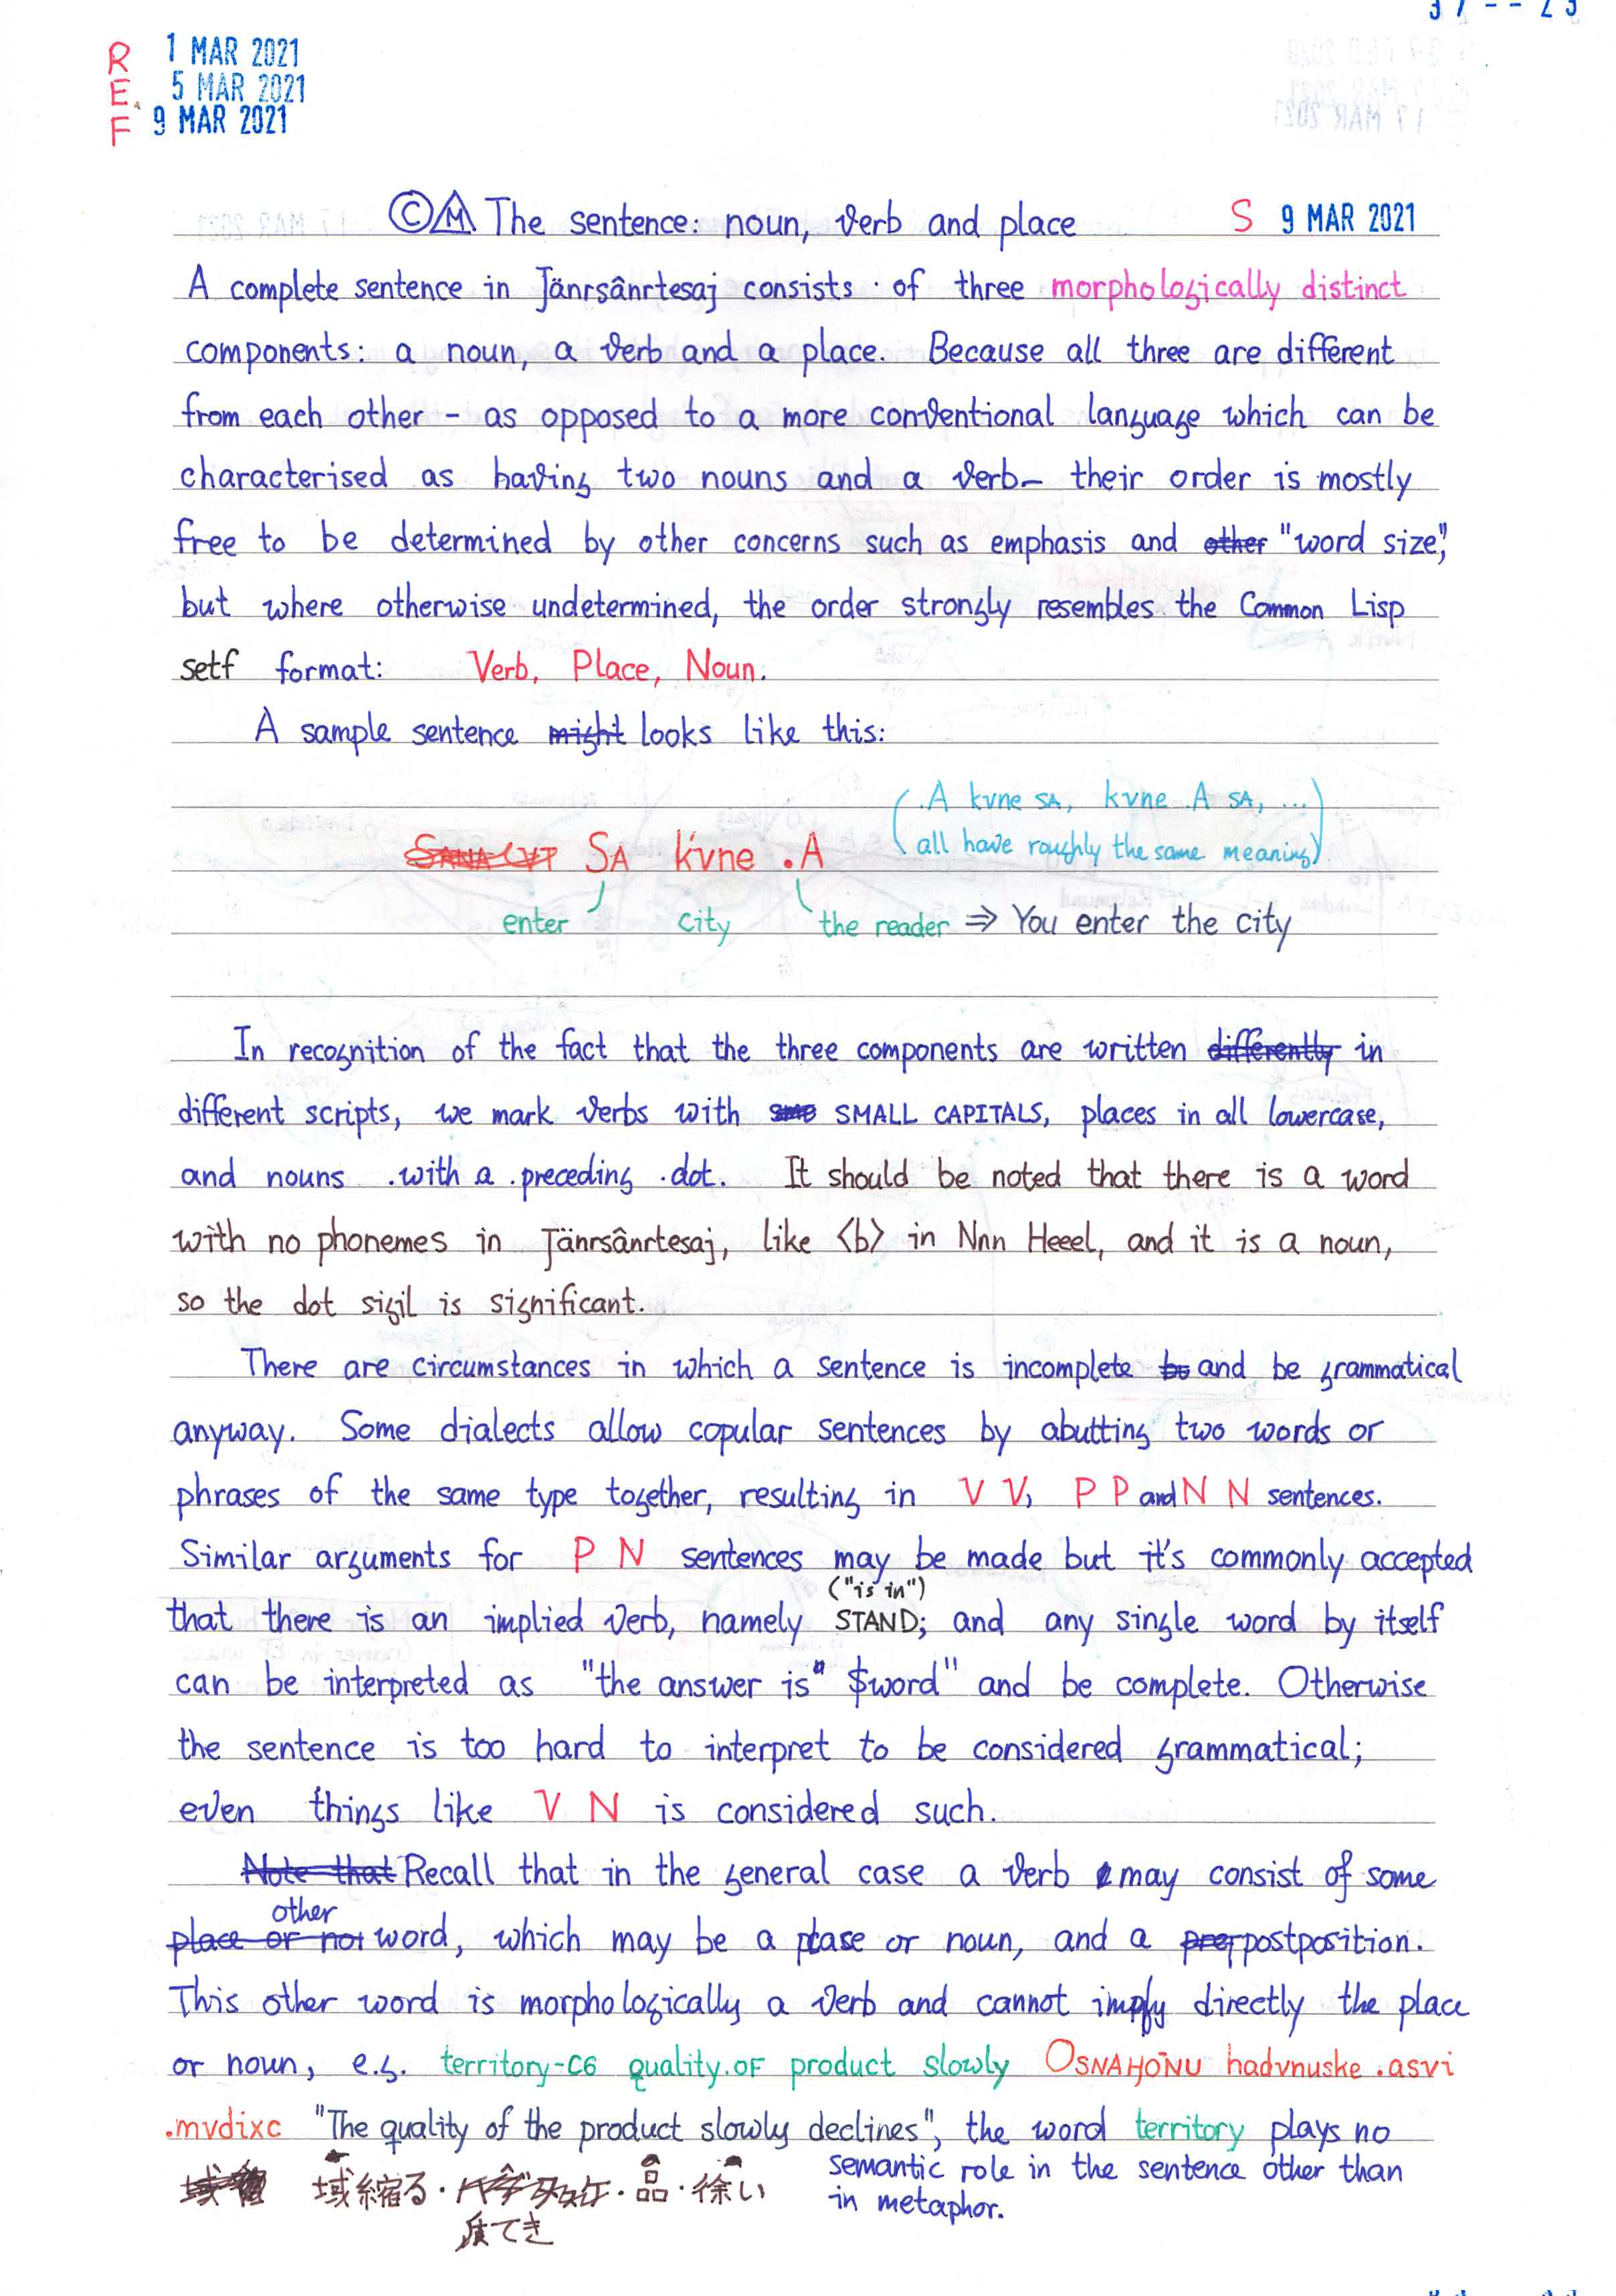 R 1 MAR 2021
E 5 MAR 2021
F 9 MAR 2021
The sentence: noun, verb and place S 9 MAR 2021
A complete sentence in Jänrsânrtesaj consists of three morphologically distinct
components: a noun, a verb and a place. Because all three are different
from each other – as opposed to a more conventional language which can be
characterised as having two nouns and a verb – their order is mostly
free to be determined by other concerns such as emphasis and other "word size",
but where otherwise undetermined, the order strongly resembles the Common Lisp
setf format: Verb, Place, Noun.
A sample sentence might looks like this:
(.A kvne SA, kvne .A SA, ...
all have roughly the same meaning)
SA kvne .A
enter city the reader ⇒ You enter the city
In recognition of the fact that the three components are written differently in
different scripts, we mark verbs with SMALL CAPITALS, places in all lowercase,
and nouns .with a .preceding .dot. It should be noted that there is a word
with no phonemes in Jänrsânrtesaj, like <b> in Nnn Heeel, and it is a noun,
so the dot sigil is significant.
There are circumstances in which a sentence is incomplete be and be grammatical
anyway. Some dialects allow copular sentences by abutting two words or
phrases of the same type together, resulting in V V, P P and N N sentences.
Similar arguments for P N sentences may be made but it's commonly accepted
("is in")
that there is an implied verb, namely STAND; and any single word by itself
can be interpreted as "the answer is $word" and be complete. Otherwise
the sentence is too hard to interpret to be considered grammatical;
even things like V N is considered such.
Note that Recall that in the general case a verb may consist of some
other
place or not word, which may be a place or noun, and a postposition.
This other word is morphologically a verb and cannot imply directly the place
or noun, e.g. territory-C6 quality.OF product slowly OSNAHŌNU hadvnuske .asvi
.mvdixc "The quality of the product slowly declines", the word territory plays no
semantic role in the sentence other than
in metaphor.
域縮る・ ・品・徐い
質てき